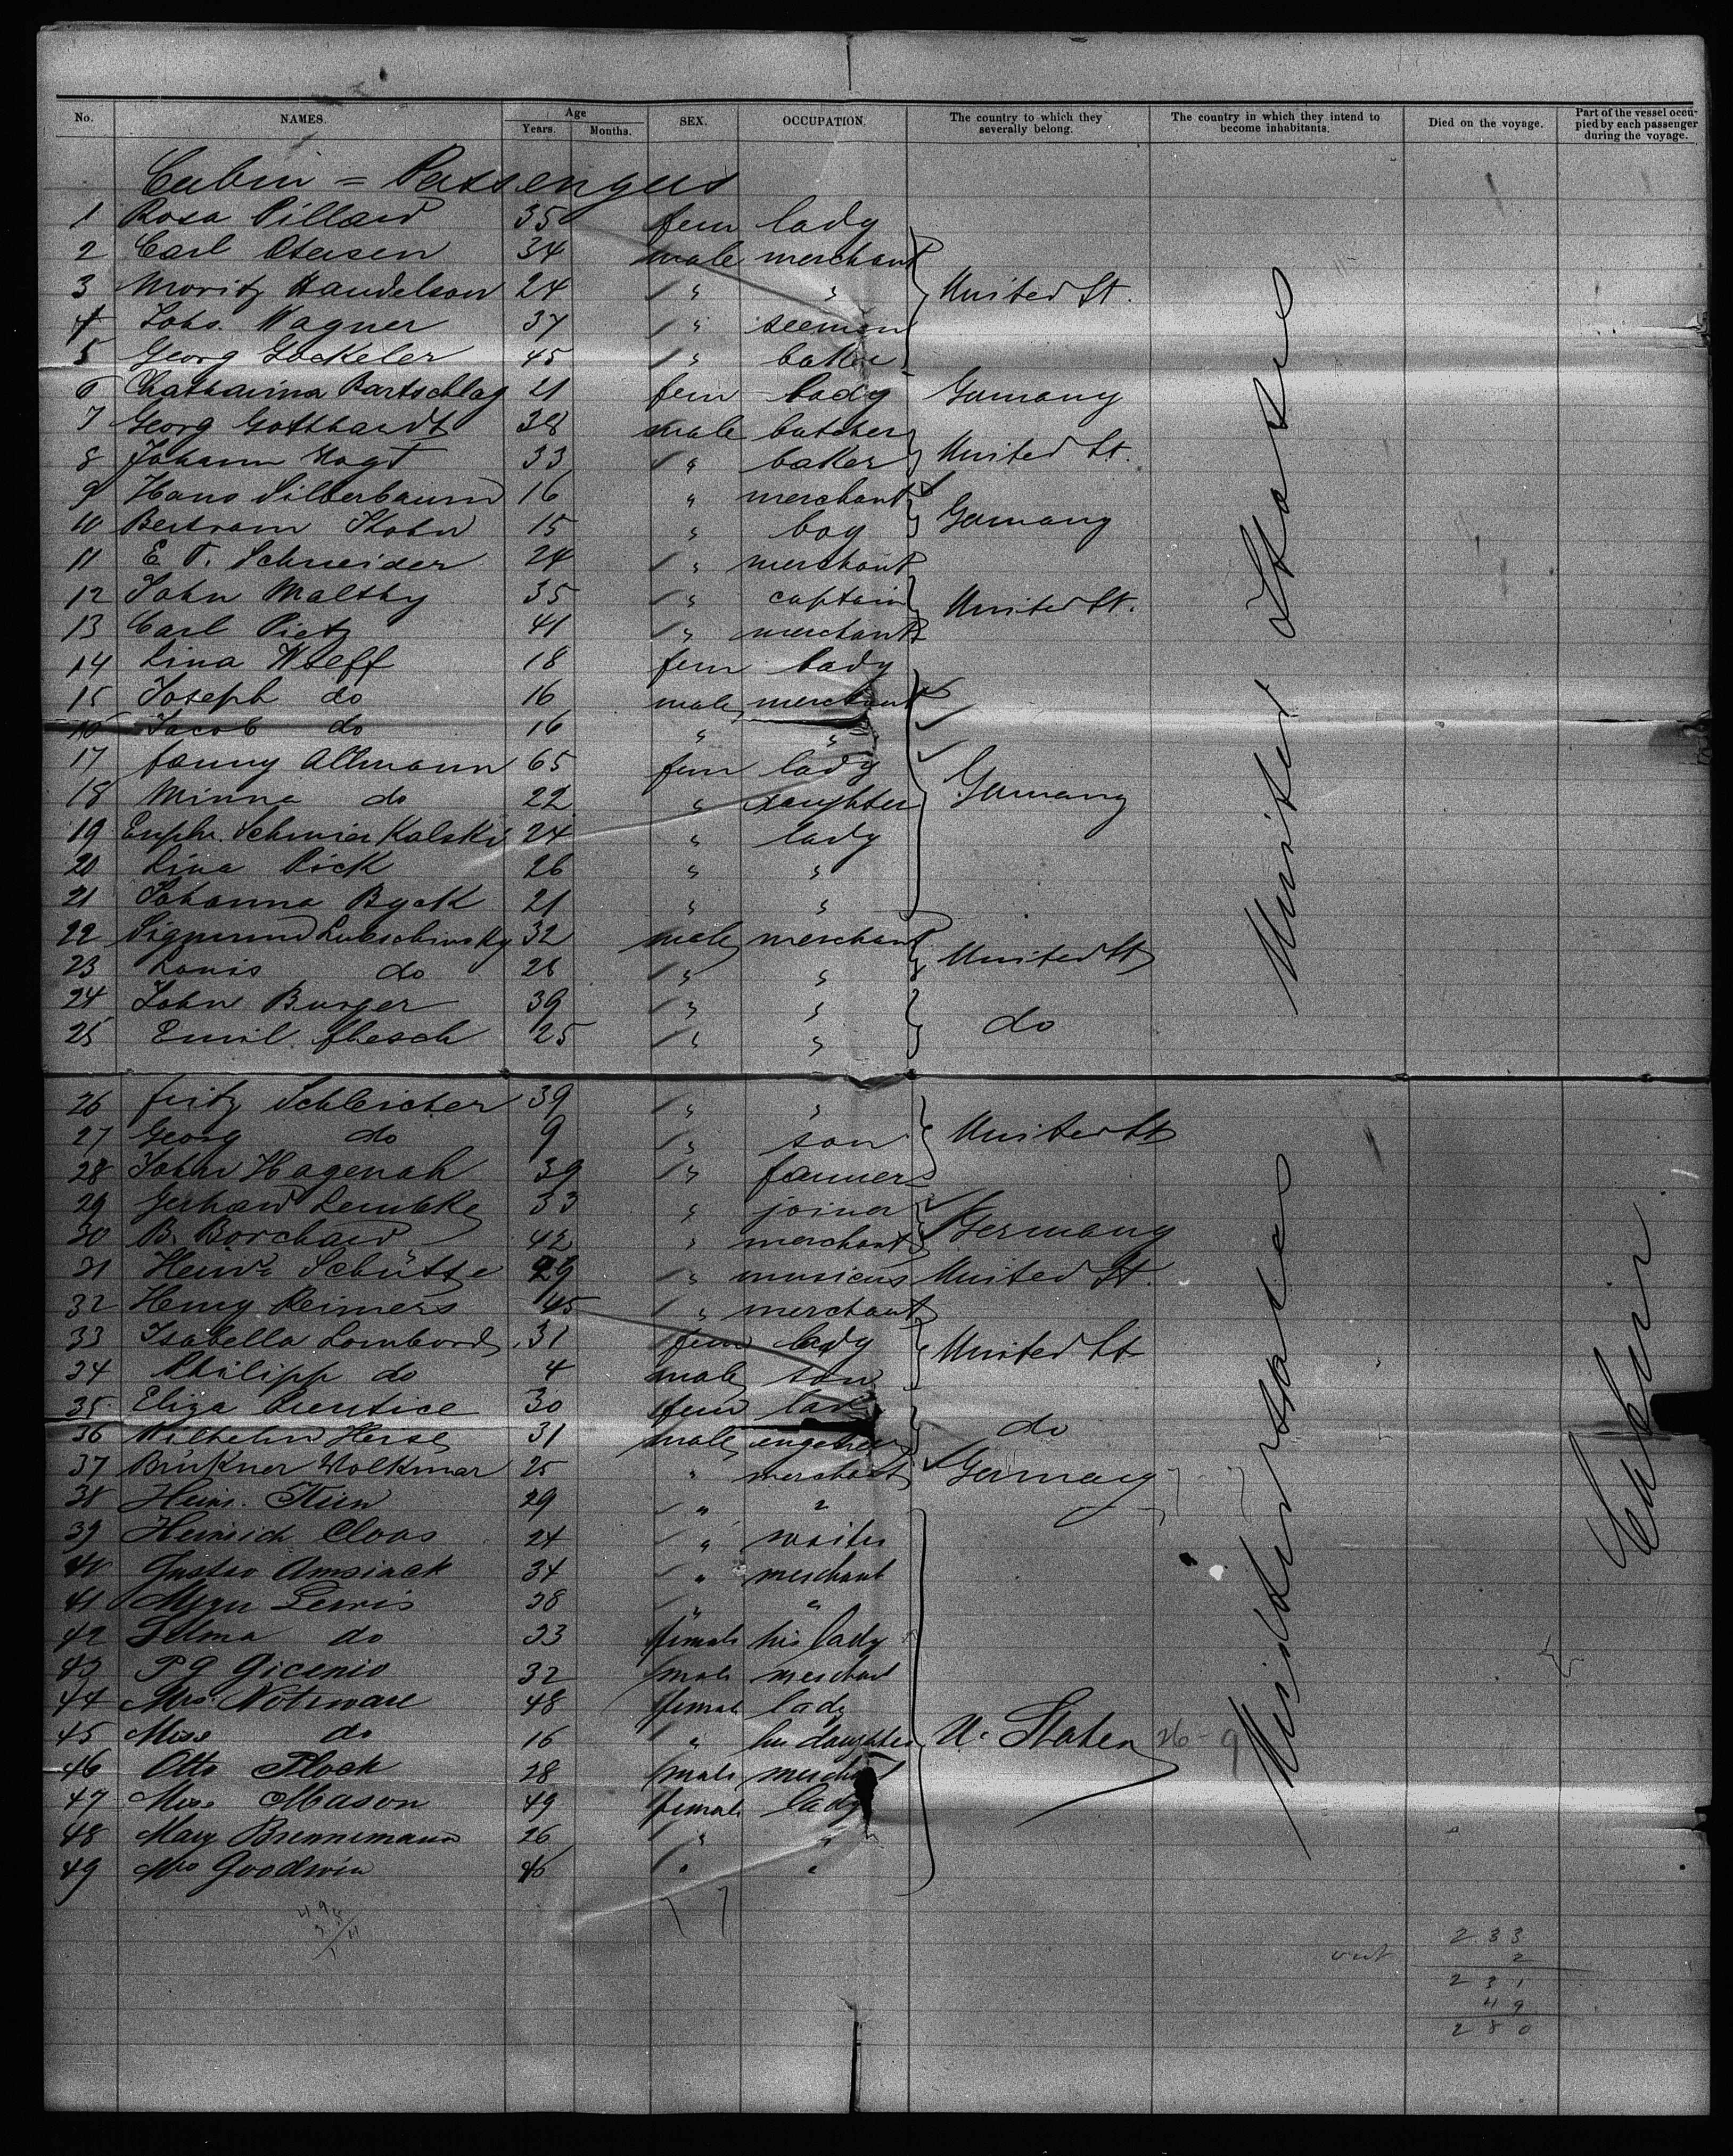 No. NAMES. Age Years. Months. SEX. OCCUPATION. The country to which they severally belong. The country in which they intend to become inhabitants. Died on the voyage. Part of the vessel occupied by each passenger during the voyage.
Cabin = Passengers
1 Rosa Pillard 35 fem lady
2 Carl Petersen 34 male merchant
3 Moritz Handelson 24 " " United St.
4 Johs. Wagner 37 " seeman
5 Georg Göckeler 45 " baker
6 Chatharina Bartschlag 21 fem lady Germany
7 Georg Gotthardt 38 male butcher
8 Johann Vogt 33 " baker United St.
9 Hans Silberbaum 16 " merchant
10 Bertram Stohn 15 " boy Germany
11 E. T. Schneider 24 " merchant
12 John Maltby 35 " captain United St.
13 Carl Pietz 41 " merchant
14 Lina Wolff 18 fem lady
15 Joseph do 16 male merchant
16 Jacob do 16 " "
17 Fanny Altmann 65 fem lady
18 Minna do 22 " daughter Germany
19 Euphr. Schmierkalski 24 " lady
20 Lina Pick 26 " "
21 Johanna Byck 21 " "
22 Sigmund Lubschinsky 32 male merchant
23 Louis do 28 " " United St
24 John Burger 39 " "
25 Emil Flesch 25 " " do
United States
26 Fritz Schleicher 39 " "
27 Georg do 9 " son United St
28 John Hagenah 39 " farmer
29 Gerhard Lembke 33 " joiner
30 B. Borchard 42 " merchant Germany
31 Heinr. Schütte 29 " musicus United St.
32 Henry Reimers 45 " merchant
33 Isabella Lombard 31 fem lady United St
34 Philipp do 4 male son
35 Eliza Prentice 30 fem lady
36 Wilhelm Herse 31 male engeneer do
37 Brükner Volkmar 25 " merchant Germany
38 Heinr. Stien 29 " "
39 Heinrich Cloos 24 " waiter
40 Gustav Amsinck 34 " merchant
41 Lewis 38 " "
42 Selma do 33 female his lady
43 32 male merchant
44 Mrs. Notware 48 female lady
45 Miss do 16 " her daughter U. States 26 - 9
46 Otto Plock 28 male merchant
47 Miss Mason 49 female lady
48 Mary Brennemann 26 " "
49 Mrs Goodwin 46 " "
United States
Cabin
233
out 2
231
49
280